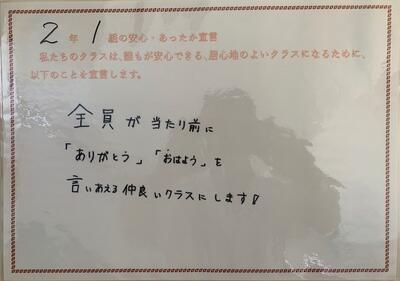 2年1組の安心・あったか宣言
私たちのクラスは、誰もが安心できる、居心地のよいクラスになるために、
以下のことを宣言します。
全員が当たり前に
「ありがとう」「おはよう」を
言いあえる仲良いクラスにします!